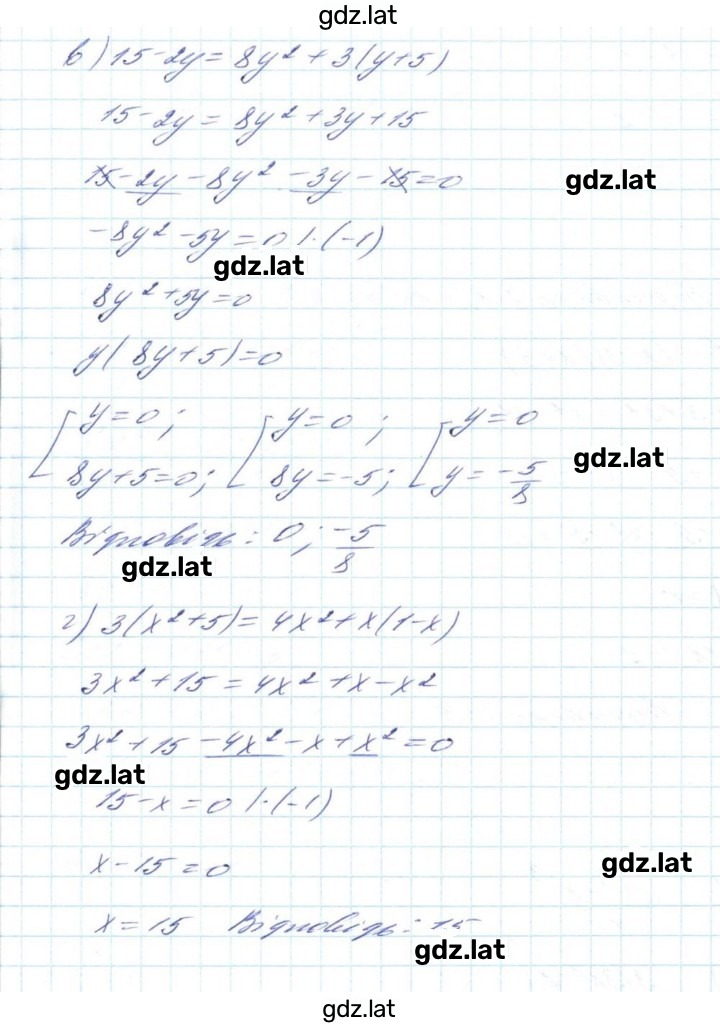 gdz.lat
в) 15-2y = 8y² + 3(y+5)
15-2y = 8y² + 3y + 15
15 - 2y - 8y² - 3y - 15 = 0
gdz.lat
-8y² - 5y = 0 |·(-1)
gdz.lat
8y² + 5y = 0
y(8y+5) = 0
[ y=0; [ y=0; [ y=0
8y+5=0; 8y=-5; y = -5/8
gdz.lat
Відповідь: 0; -5/8
gdz.lat
г) 3(x²+5) = 4x² + x(1-x)
3x² + 15 = 4x² + x - x²
3x² + 15 - 4x² - x + x² = 0
gdz.lat
15 - x = 0 |·(-1)
x - 15 = 0
gdz.lat
x = 15 Відповідь: 15
gdz.lat
gdz.lat